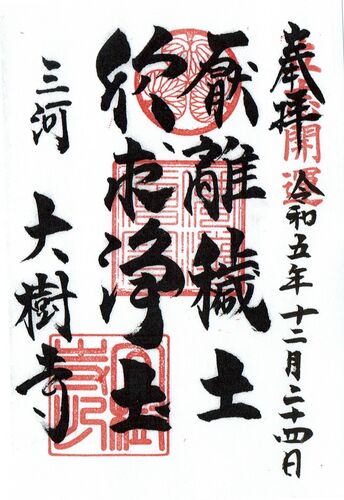 奉拝 令和五年十二月二十四日
厭離穢土
欣求浄土
三河 大樹寺